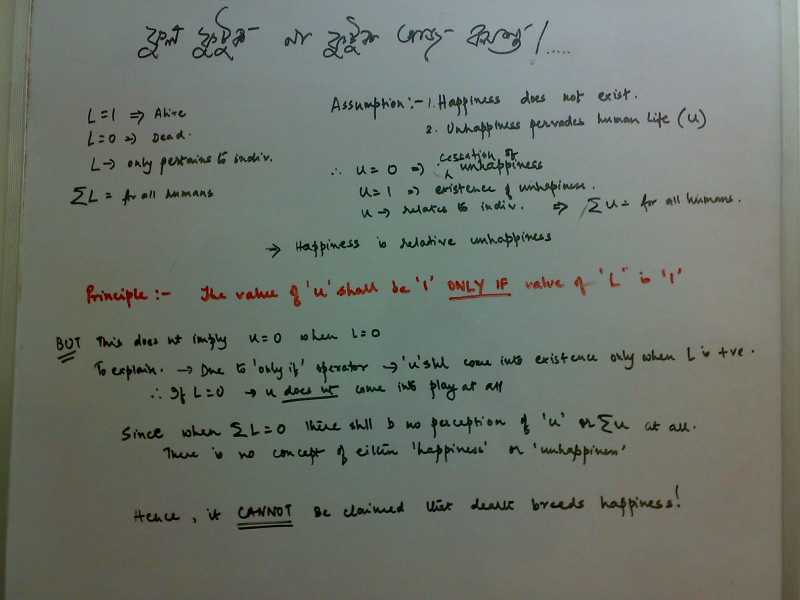 ফুল ফুটুক না ফুটুক আজ বসন্ত /.....
L=1 ⇒ Alive
L=0 ⇒ Dead.
L → only pertains to indiv.
ΣL = for all humans
Assumption:- 1. Happiness does not exist.
2. Unhappiness pervades human life (u)
∴ u=0 ⇒ cessation of unhappiness
u=1 ⇒ existence of unhapiness.
u → relates to indiv. ⇒ Σu = for all humans.
→ Happiness is relative unhappiness
Principle:- The value of 'u' shall be '1' ONLY IF value of 'L' is '1'
BUT This does nt imply u=0 when L=0
To explain. → Due to 'only if' operator → 'u' shll come into existence only when L is +ve.
∴ If L=0 → u does nt come into play at all
Since when ΣL=0 There shll b no perception of 'u' or Σu at all.
There is no concept of either 'happiness' or 'unhappiness'
Hence, it CANNOT be claimed that death breeds happiness!